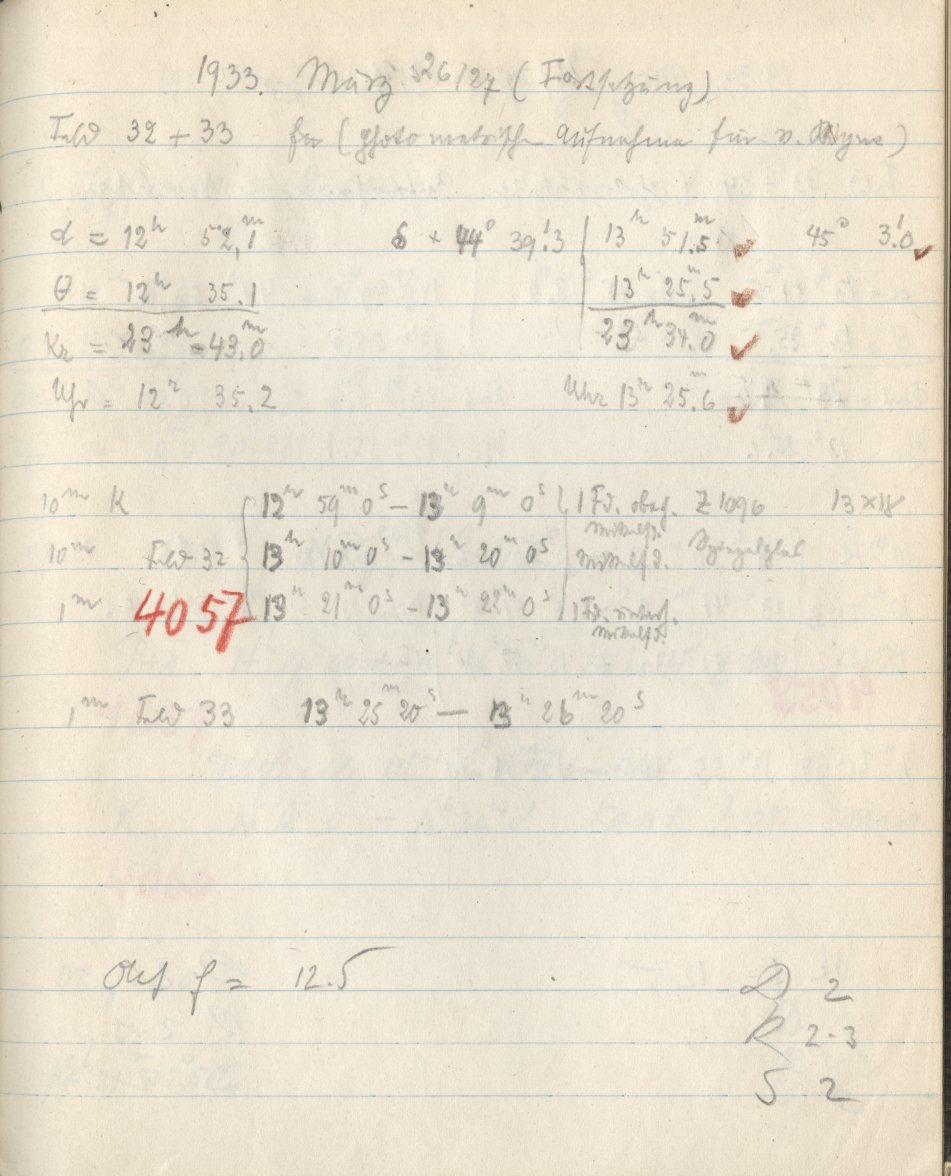 1933. März 26/27 (Fortsetzung)
Feld 32 + 33 (photometrische Aufnahme für v.
α = 12h 52,1m δ + 44° 39!3 13h 51.5m 45° 3!0
θ = 12h 35.1 13h 25.5m
= 23h 43.0m 23h 34.0m
Uhr = 12h 35.2 Uhr 13h 25.6m
10m K 12h 59m 0s – 13h 9m 0s 1 Fd. Z 1096 13×18
10m Feld 32 13h 10m 0s – 13h 20m 0s Spiegelglas
1m 4057 13h 21m 0s – 13h 22m 0s 1 Fd.
1m Feld 33 13h 25m 20s — 13h 26m 20s
f = 12.5
D 2
R 2-3
S 2